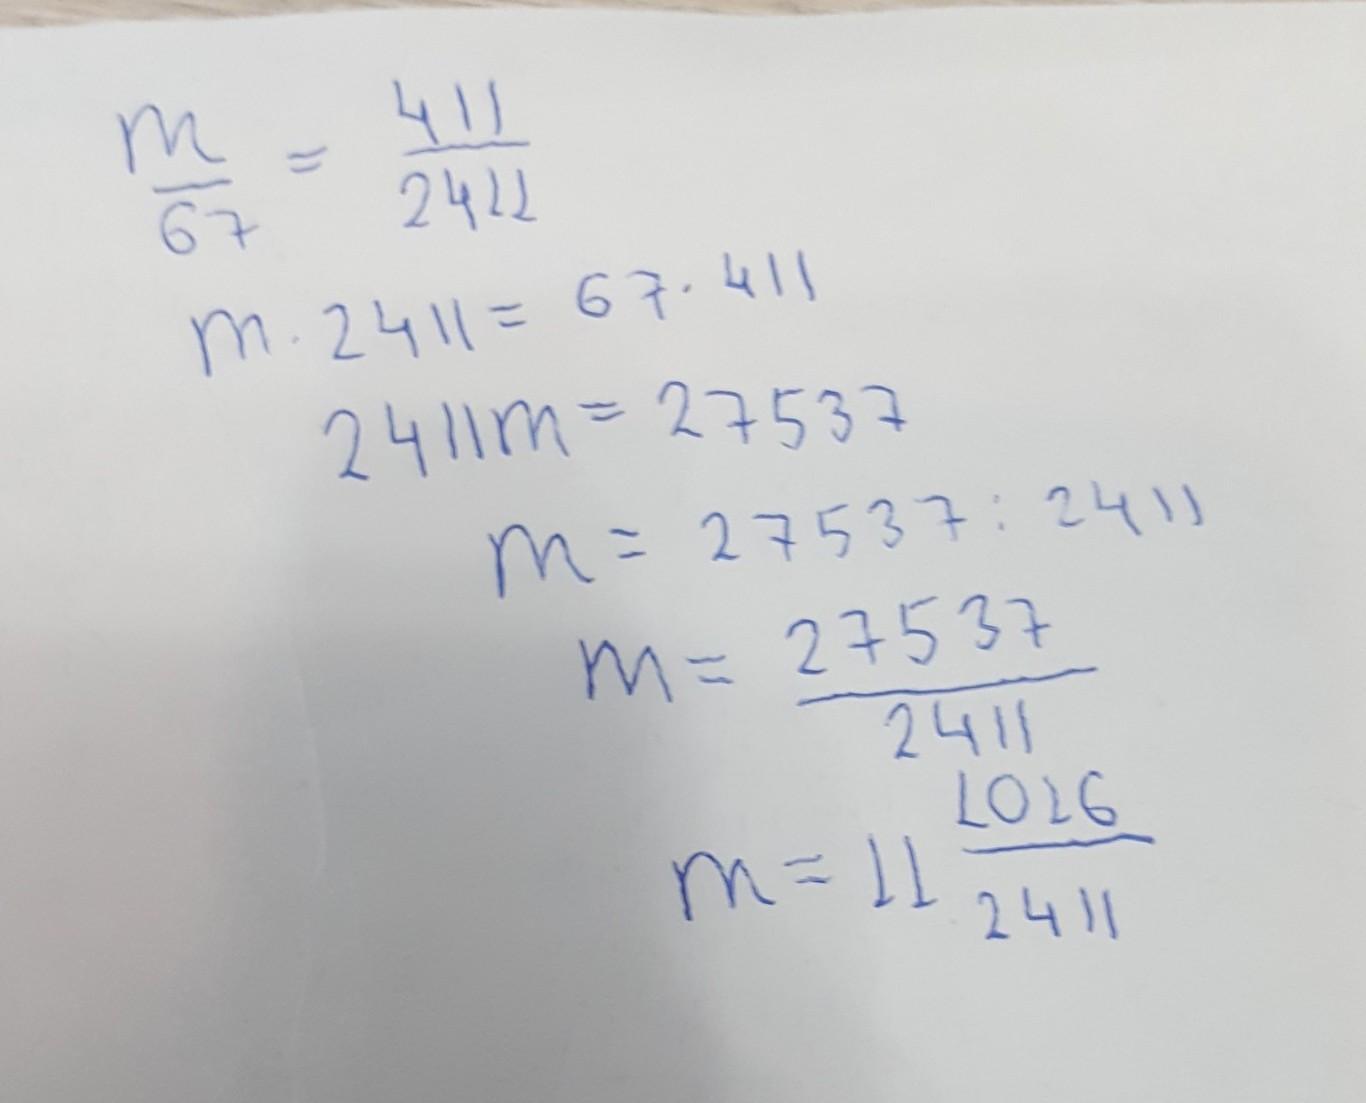 m/67 = 411/2411
m · 2411 = 67 · 411
2411m = 27537
m = 27537 : 2411
m = 27537/2411
m = 11 1016/2411